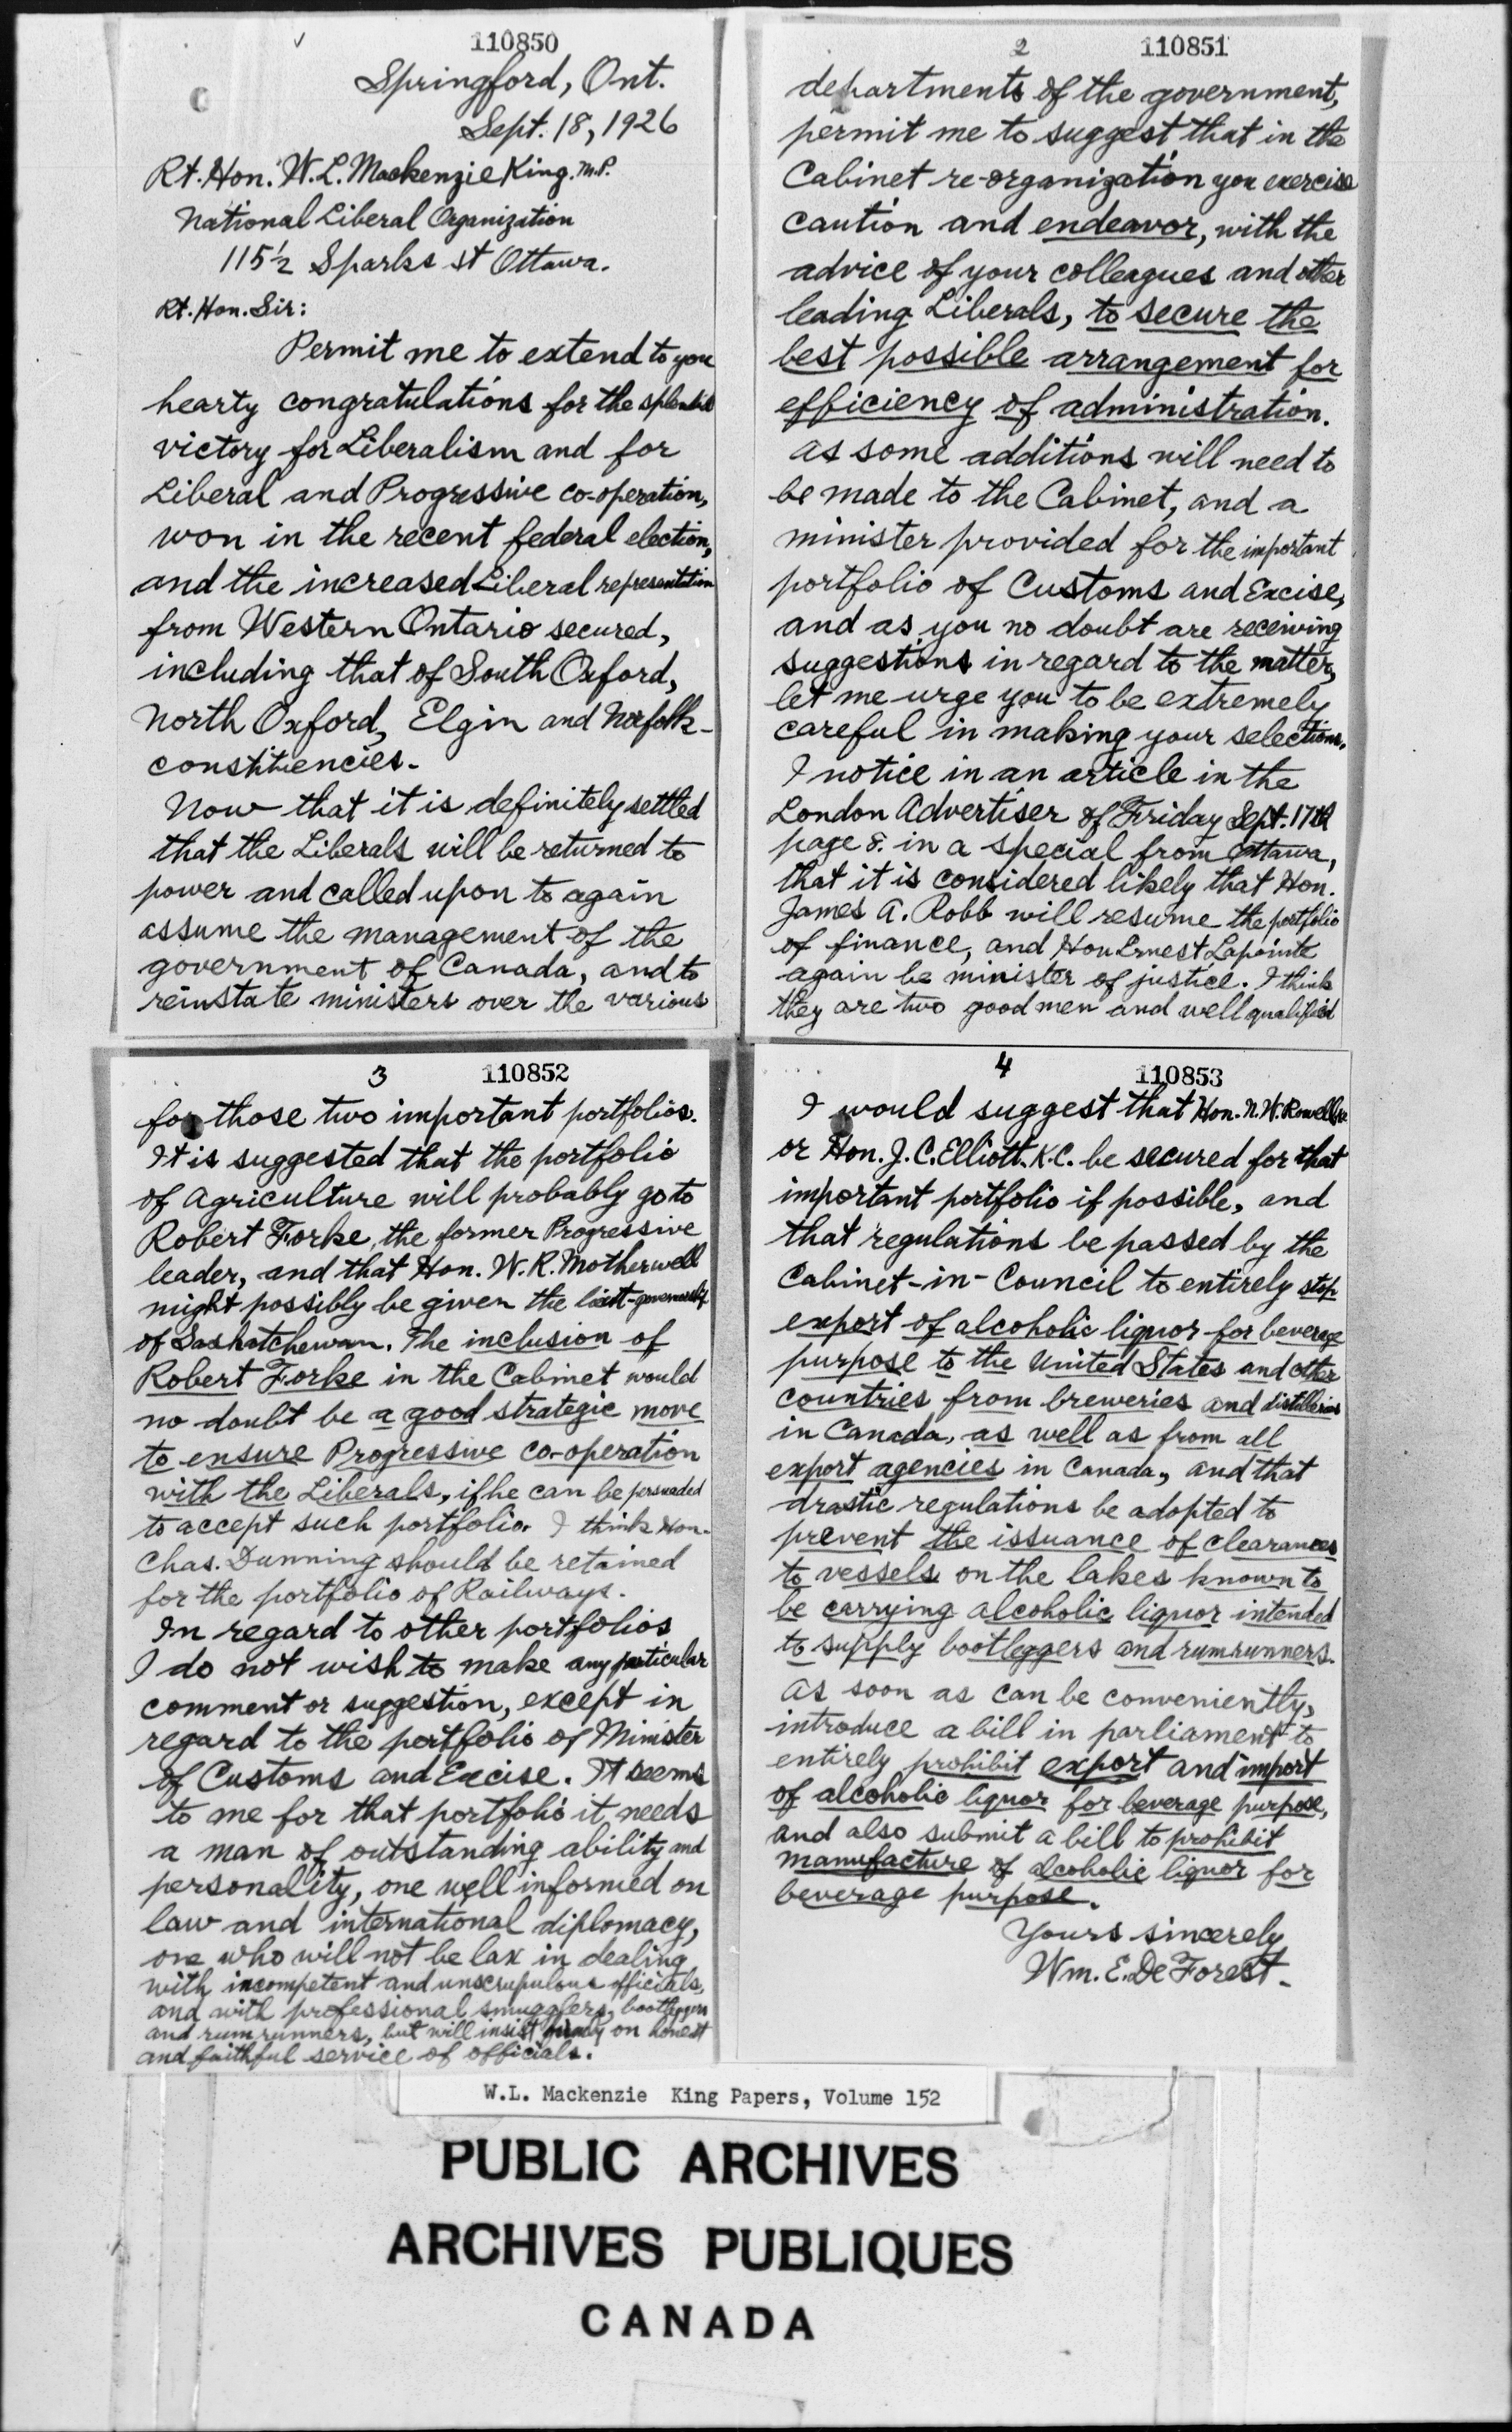 110850
Springford, Ont.
Sept. 18, 1926
Rt. Hon. W. L. Mackenzie King. M.P.
National Liberal Organization
115½ Sparks st Ottawa.
Rt. Hon. Sir:
Permit me to extend to you
hearty congratulations for the splendid
victory for Liberalism and for
Liberal and Progressive co-operation,
won in the recent federal election,
and the increased Liberal representation
from Western Ontario secured,
including that of South Oxford,
North Oxford, Elgin and Norfolk
constituencies.
Now that it is definitely settled
that the Liberals will be returned to
power and called upon to again
assume the management of the
government of Canada, and to
reinstate ministers over the various
2 110851
departments of the government,
permit me to suggest that in the
Cabinet re-organization you exercise
caution and endeavor, with the
advice of your colleagues and other
leading Liberals, to secure the
best possible arrangement for
efficiency of administration.
As some additions will need to
be made to the Cabinet, and a
minister provided for the important
portfolio of Customs and Excise,
and as you no doubt are receiving
suggestions in regard to the matter,
let me urge you to be extremely
careful in making your selections.
I notice in an article in the
London Advertiser of Friday Sept. 17th
page 8. in a special from Ottawa,
that it is considered likely that Hon.
James A. Robb will resume the portfolio
of finance, and Hon Ernest Lapointe
again be minister of justice. I think
they are two good men and well qualified
3 110852
for those two important portfolios.
It is suggested that the portfolio
of Agriculture will probably go to
Robert Forke, the former Progressive
leader, and that Hon. W. R. Motherwell
might possibly be given the lieut-governorship
of Saskatchewan. The inclusion of
Robert Forke in the Cabinet would
no doubt be a good strategic move
to ensure Progressive co-operation
with the Liberals, if he can be persuaded
to accept such portfolio. I think Hon.
Chas. Dunning should be retained
for the portfolio of Railways.
In regard to other portfolios
I do not wish to make any particular
comment or suggestion, except in
regard to the portfolio of Minister
of Customs and Excise. It seems
to me for that portfolio it needs
a man of outstanding ability and
personality, one well informed on
law and international diplomacy,
one who will not be lax in dealing
with incompetent and unscrupulous officials,
and with professional smugglers, bootleggers
and rumrunners, but will insist firmly on honest
and faithful service of officials.
4 110853
I would suggest that Hon. N. W. Rowell
or Hon. J. C. Elliott. K.C. be secured for that
important portfolio if possible, and
that regulations be passed by the
Cabinet-in-Council to entirely stop
export of alcoholic liquor for beverage
purpose to the United States and other
countries from breweries and distilleries
in Canada, as well as from all
export agencies in Canada, and that
drastic regulations be adopted to
prevent the issuance of clearances
to vessels on the lakes known to
be carrying alcoholic liquor intended
to supply bootleggers and rumrunners.
As soon as can be conveniently,
introduce a bill in parliament to
entirely prohibit export and import
of alcoholic liquor for beverage purpose,
and also submit a bill to prohibit
manufacture of alcoholic liquor for
beverage purpose.
Yours sincerely
Wm. E. DeForest.
W.L. Mackenzie King Papers, Volume 152
PUBLIC ARCHIVES
ARCHIVES PUBLIQUES
CANADA